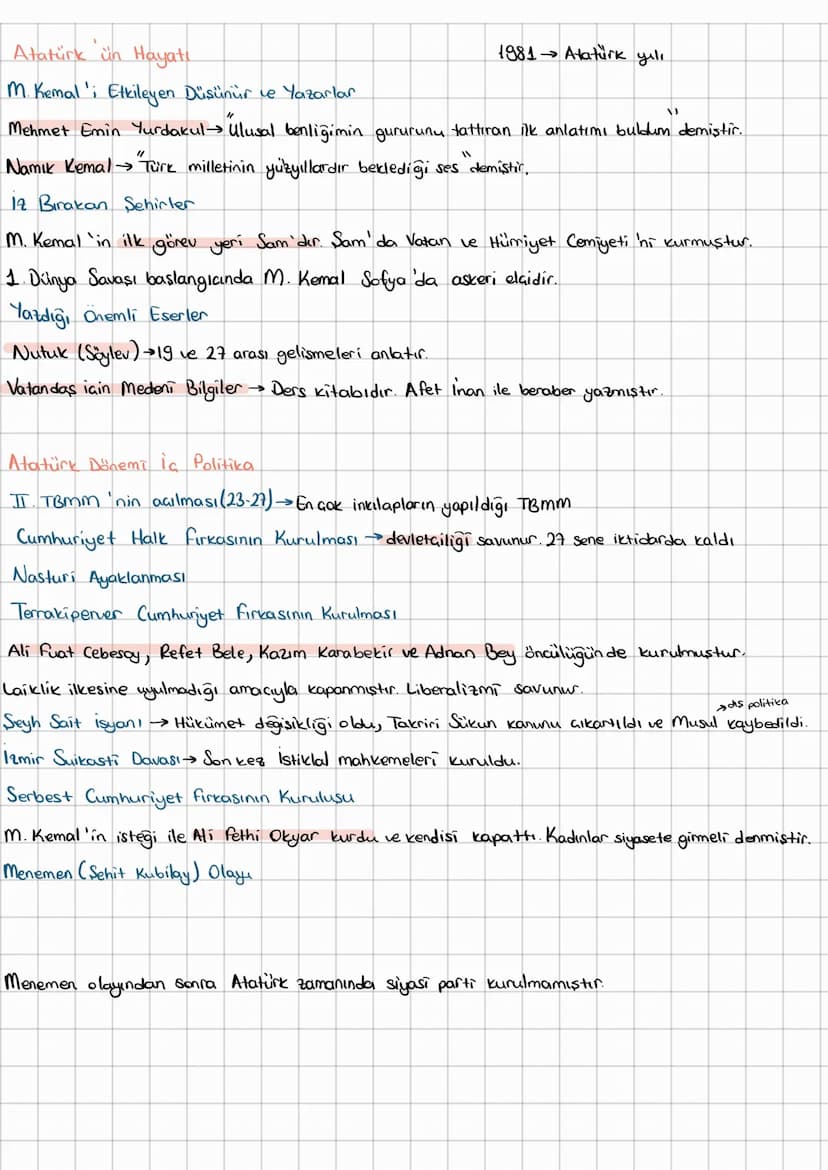 Atatürk'ün Hayatı
1981 → Atatürk yılı
M. Kemal'i Etkileyen Düşünür ve Yazarlar
Mehmet Emin Yurdakul → "Ulusal benliğimin gururunu tattıran ilk anlatımı buldum" demiştir.
Namık Kemal → "Türk milletinin yüzyıllardır beklediği ses" demiştir.
İz Bırakan Şehirler
M. Kemal'in ilk görev yeri Şam'dır. Şam'da Vatan ve Hürriyet Cemiyeti'ni kurmuştur.
1. Dünya Savaşı başlangıcında M. Kemal Sofya'da askeri elçidir.
Yazdığı Önemli Eserler
Nutuk (Söylev) → 19 ve 27 arası gelişmeleri anlatır.
Vatandaş için Medeni Bilgiler → Ders kitabıdır. Afet İnan ile beraber yazmıştır.
Atatürk Dönemi İç Politika
II. TBMM'nin açılması (23-27) → En çok inkılapların yapıldığı TBMM
Cumhuriyet Halk Fırkasının Kurulması → devletçiliği savunur. 27 sene iktidarda kaldı
Nasturi Ayaklanması
Terrakiperver Cumhuriyet Fırkasının Kurulması
Ali Fuat Cebesoy, Refet Bele, Kazım Karabekir ve Adnan Bey öncülüğünde kurulmuştur.
Laiklik ilkesine uyulmadığı amacıyla kapanmıştır. Liberalizmi savunur.
→ dış politika
Şeyh Sait isyanı → Hükümet değişikliği oldu, Takriri Sükun kanunu çıkartıldı ve Musul kaybedildi.
İzmir Suikasti Davası → Son kez İstiklal mahkemeleri kuruldu.
Serbest Cumhuriyet Fırkasının Kuruluşu
M. Kemal'in isteği ile Ali Fethi Okyar kurdu ve kendisi kapattı. Kadınlar siyasete girmeli denmiştir.
Menemen (Şehit Kubilay) Olayı
Menemen olayından sonra Atatürk zamanında siyasi parti kurulmamıştır.